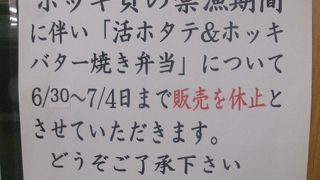 ホッキ貝の禁漁期間
に伴い「活ホタテ&ホッキ
バター焼き弁当」について
6/30～7/4日まで販売を休止と
させていただきます。
どうぞご了承下さい